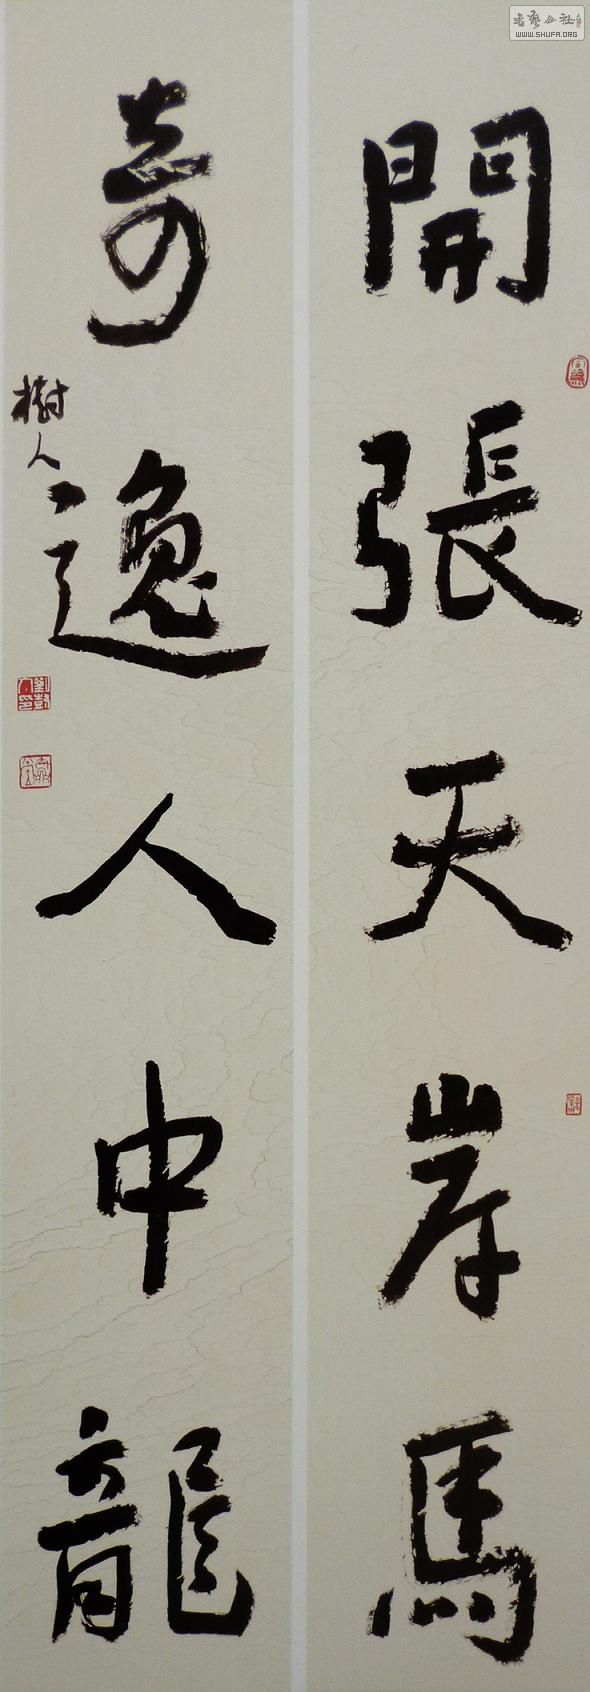 開張天岸馬
奇逸人中龍
樹人
書藝公社
WWW.SHUFA.ORG